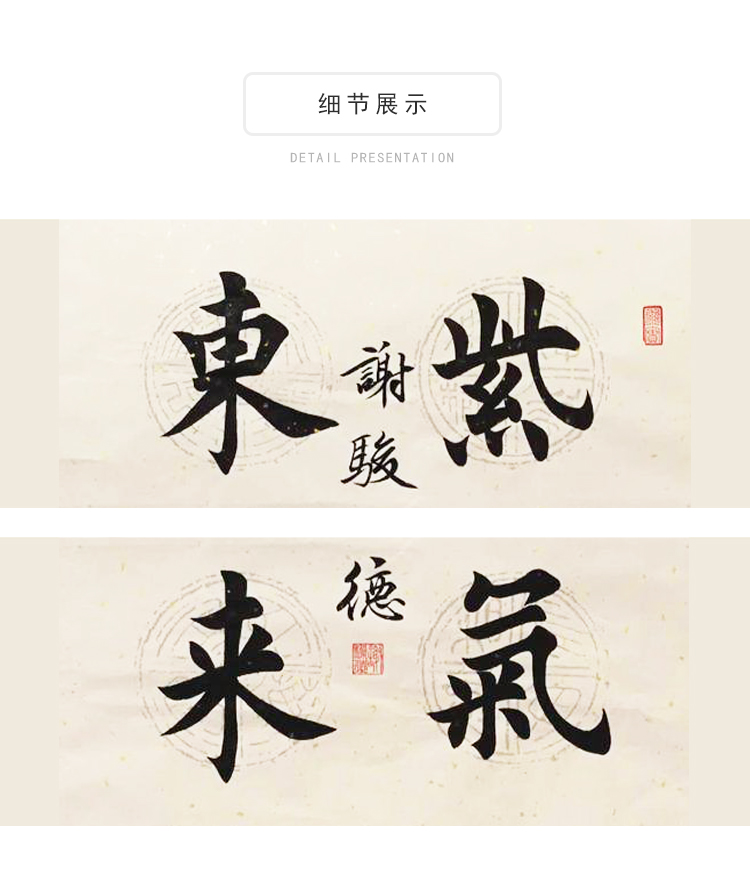 细节展示
DETAIL PRESENTATION
紫
謝駿
東
氣
德
来